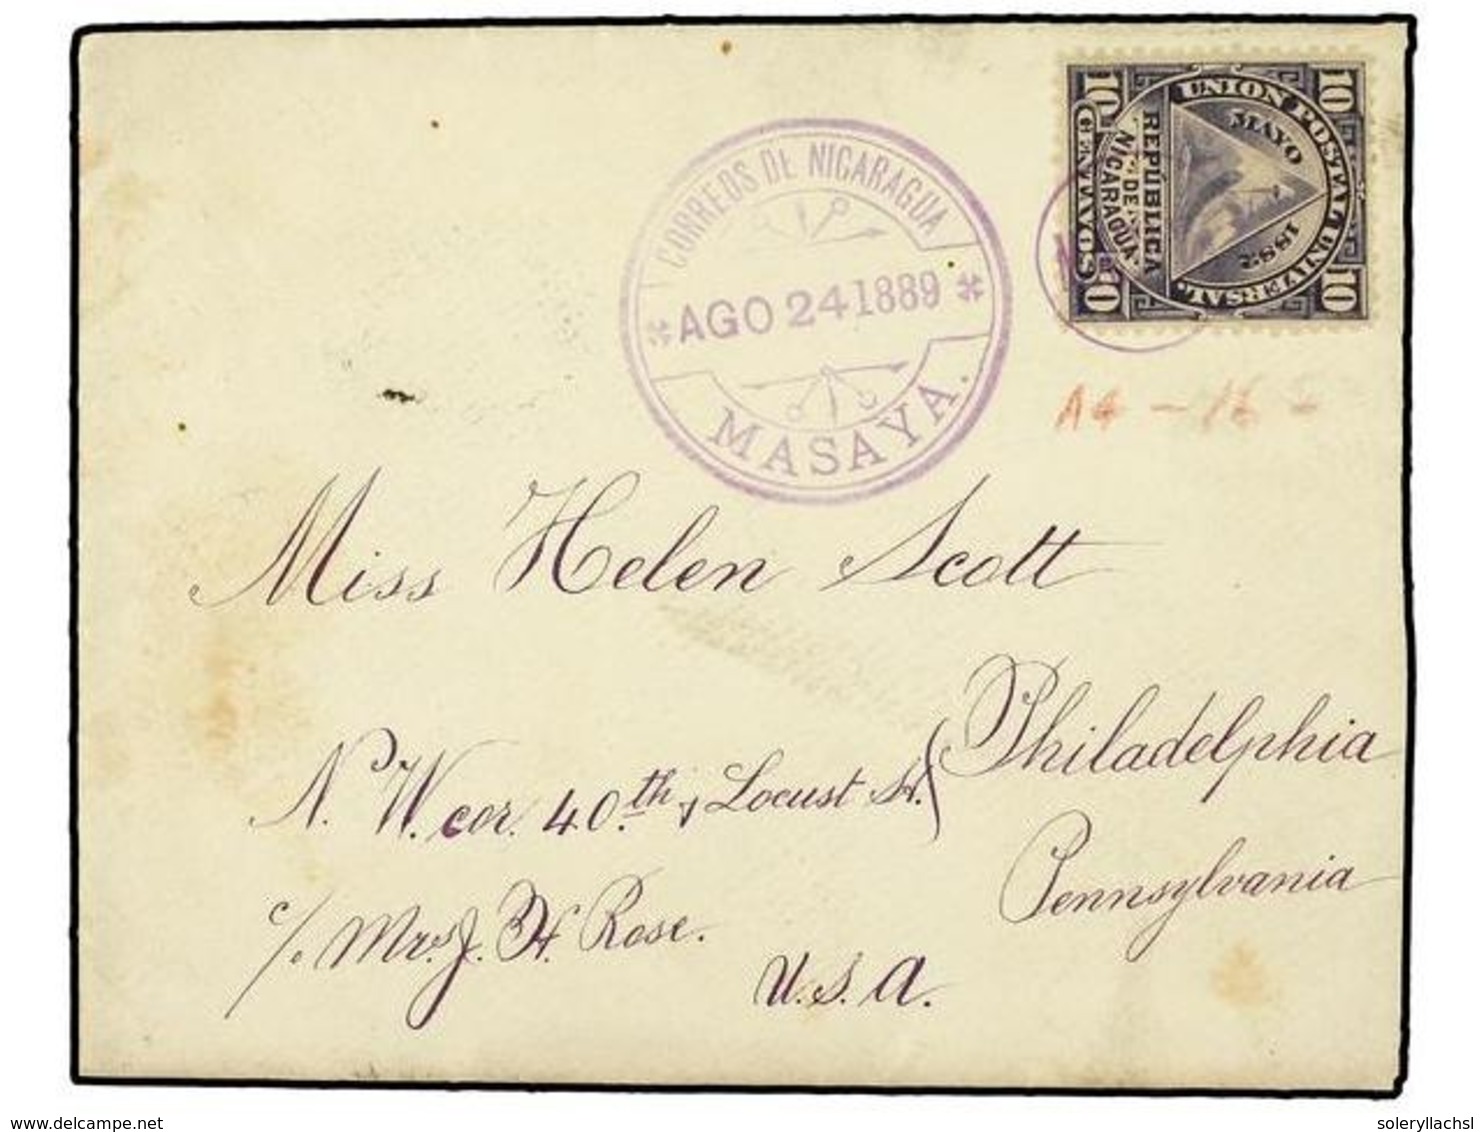 10 UNION POSTAL UNIVERSAL. 10
MAYO 1882
REPÚBLICA
DE
NICARAGUA.
10 CENTAVOS 10
CORREOS DE NICARAGUA
AGO 24 1889
MASAYA.
A4 - 16 -
Miss Helen Scott
N. W. cor. 40.th & Locust St. Philadelphia
Pennsylvania
c/o Mrs. J. H. Rose.
U.S.A.
www.delcampe.net
soleryllachsl